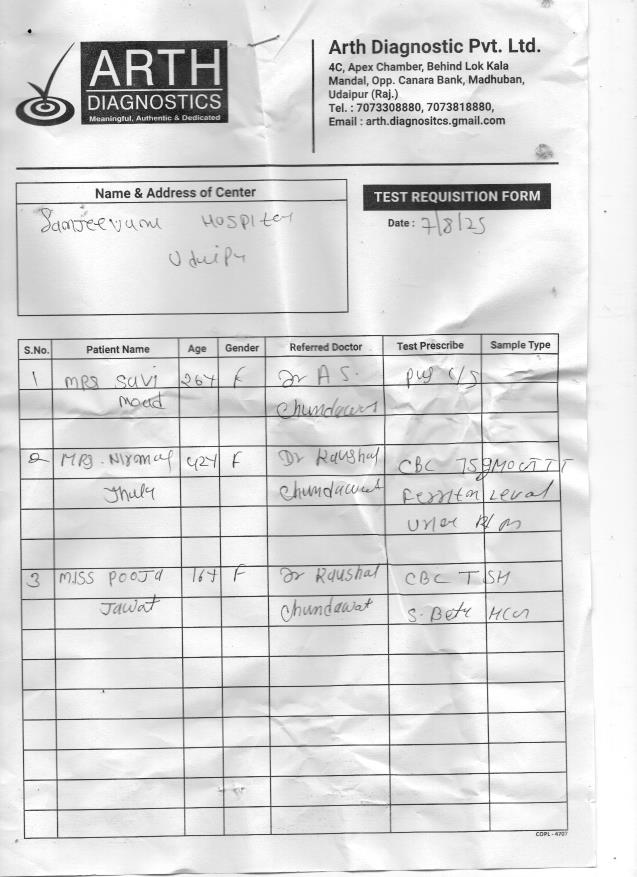 ARTH
DIAGNOSTICS
Meaningful, Authentic & Dedicated
Arth Diagnostic Pvt. Ltd.
4C, Apex Chamber, Behind Lok Kala
Mandal, Opp. Canara Bank, Madhuban,
Udaipur (Raj.)
Tel. : 7073308880, 7073818880,
Email : arth.diagnositcs.gmail.com
Name & Address of Center
TEST REQUISITION FORM
Hospital
Date : 7/8/25
S.No. Patient Name Age Gender Referred Doctor Test Prescribe Sample Type
1 MRS Savi 26Y F Dr A S. Pus C/S
Chundawat
2 MRS. Nirmal 42Y F Dr Kaushal CBC
Chundawat Level
3 MISS POOJA 16Y F Dr Kaushal CBC TSH
Jawat Chundawat S. Beta HCG
CDPL - 4707